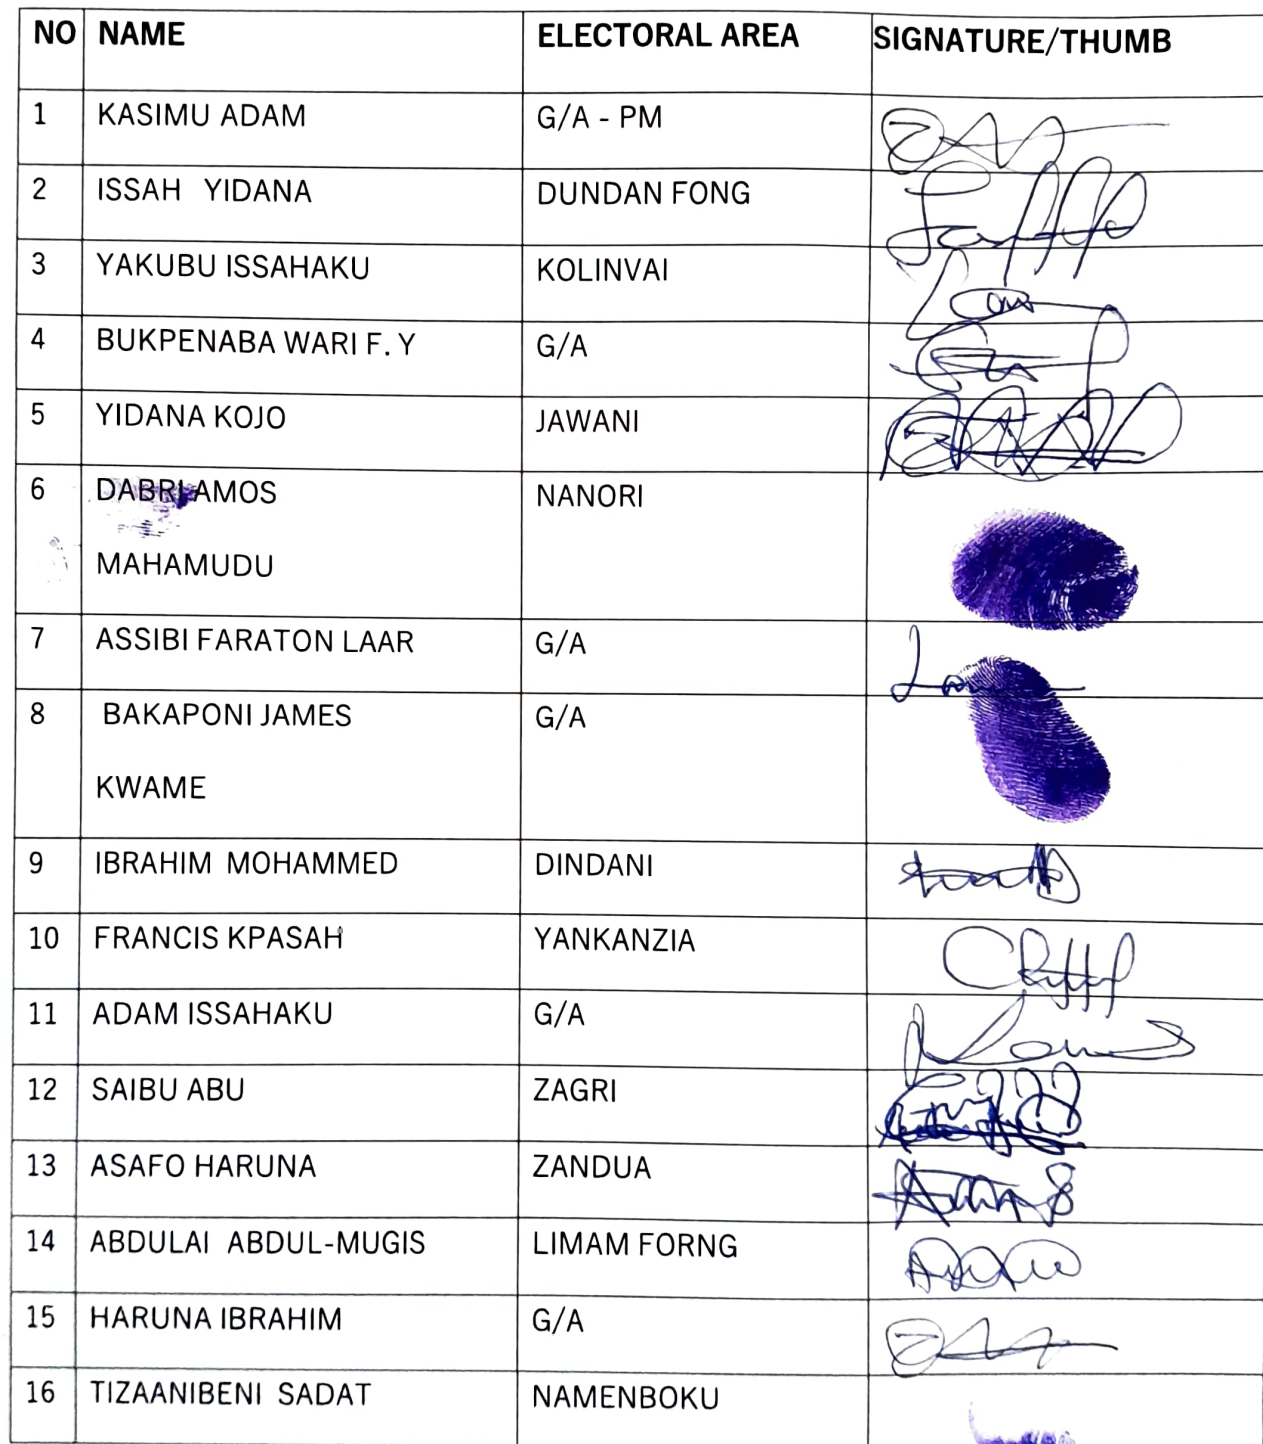 NO NAME ELECTORAL AREA SIGNATURE/THUMB
1 KASIMU ADAM G/A - PM
2 ISSAH YIDANA DUNDAN FONG
3 YAKUBU ISSAHAKU KOLINVAI
4 BUKPENABA WARI F. Y G/A
5 YIDANA KOJO JAWANI
6 DABRI AMOS NANORI
MAHAMUDU
7 ASSIBI FARATON LAAR G/A
8 BAKAPONI JAMES G/A
KWAME
9 IBRAHIM MOHAMMED DINDANI
10 FRANCIS KPASAH YANKANZIA
11 ADAM ISSAHAKU G/A
12 SAIBU ABU ZAGRI
13 ASAFO HARUNA ZANDUA
14 ABDULAI ABDUL-MUGIS LIMAM FORNG
15 HARUNA IBRAHIM G/A
16 TIZAANIBENI SADAT NAMENBOKU